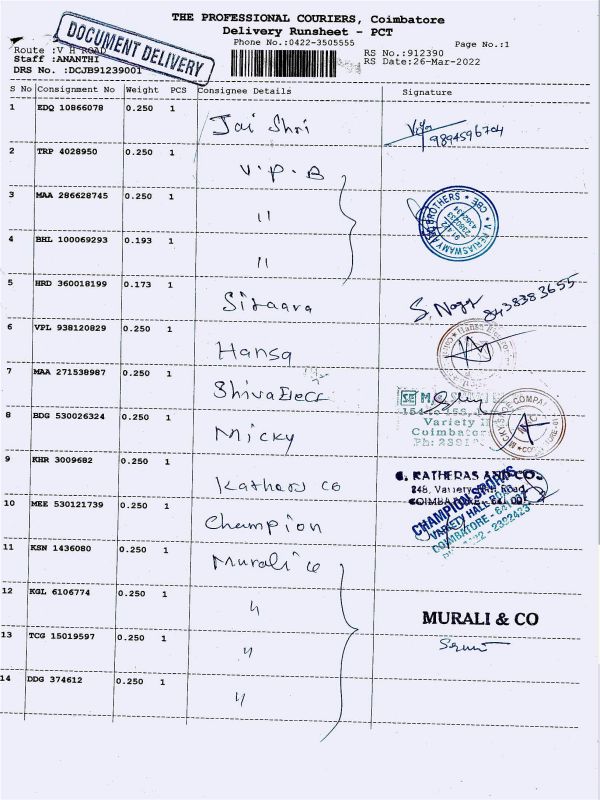 THE PROFESSIONAL COURIERS, Coimbatore
Delivery Runsheet - PCT
Phone No.:0422-3505555
Page No.:1
DOCUMENT DELIVERY
Route :V H ROAD
Staff :ANANTHI
DRS No. :DCJB91239001
RS No.:912390
RS Date:26-Mar-2022
S No Consignment No Weight PCS Consignee Details Signature
1 EDQ 10866078 0.250 1 Jai Shri
9894596704
2 TRP 4028950 0.250 1 V.P.B
3 MAA 286628745 0.250 1 "
V.PERIASWAMY AND BROTHERS * CBE *
4 BHL 100069293 0.193 1 "
5 HRD 360018199 0.173 1 Sitaara
S. Naga 8438383655
6 VPL 938120829 0.250 1 Hansa
Hansa
7 MAA 271538987 0.250 1 Shiva Elect
SE
Variety
Coimbator
Ph:
8 BDG 530026324 0.250 1 Micky
9 KHR 3009682 0.250 1 Katharu co
C. KATHERAS AND CO.
848, Variety Hall Road
COIMBATORE - 641 001
10 MEE 530121739 0.250 1 Champion
CHAMPION
VARIETY HALL ROAD
COIMBATORE - 641
2392423
11 KSN 1436080 0.250 1 Murali co
12 KGL 6106774 0.250 1 "
MURALI & CO
13 TCG 15019597 0.250 1 "
14 DDG 374612 0.250 1 "